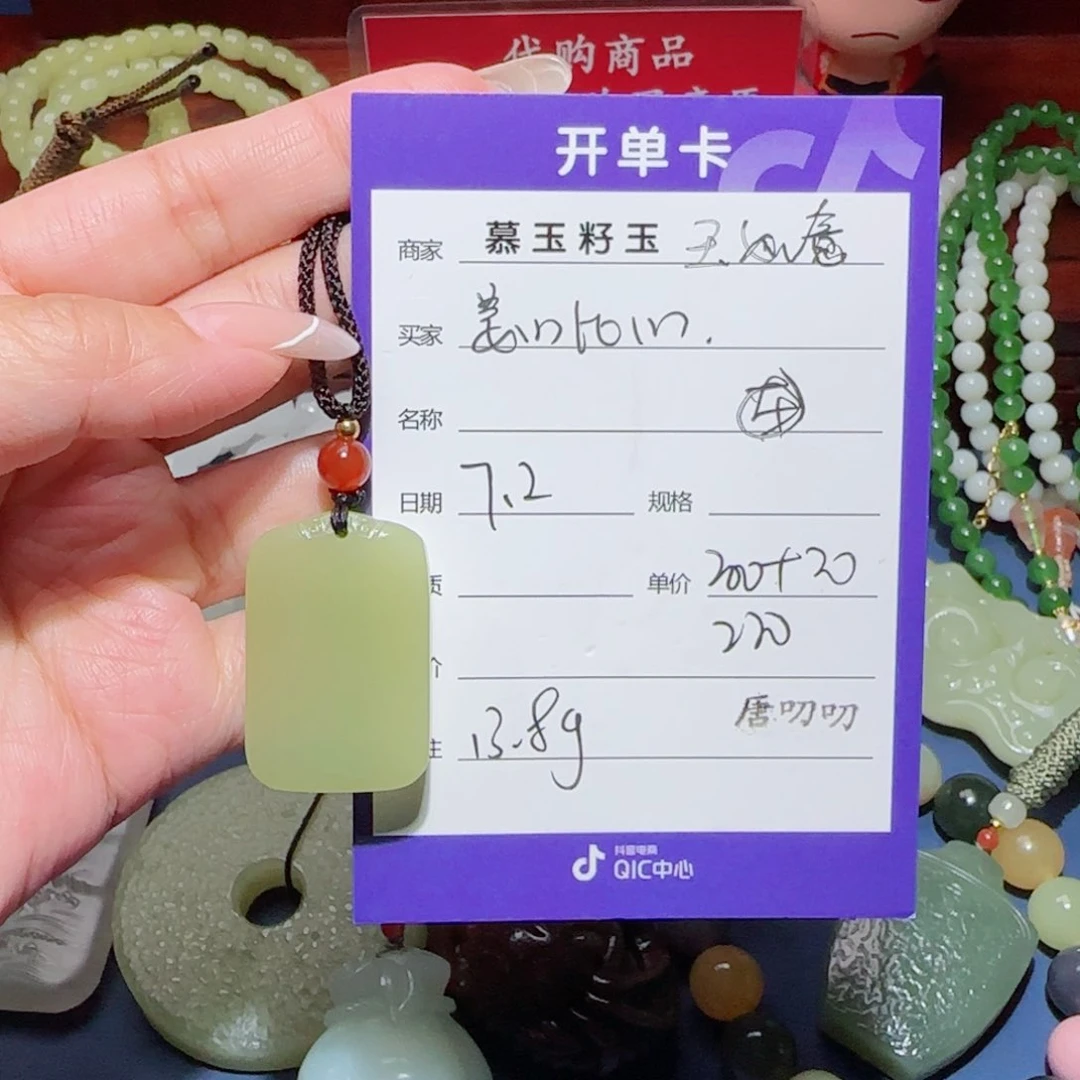 代购商品
开单卡
商家 慕玉籽玉
买家
名称
日期 7.2 规格
单价 200+20
220
13.8g 唐叨叨
抖音电商
QIC中心